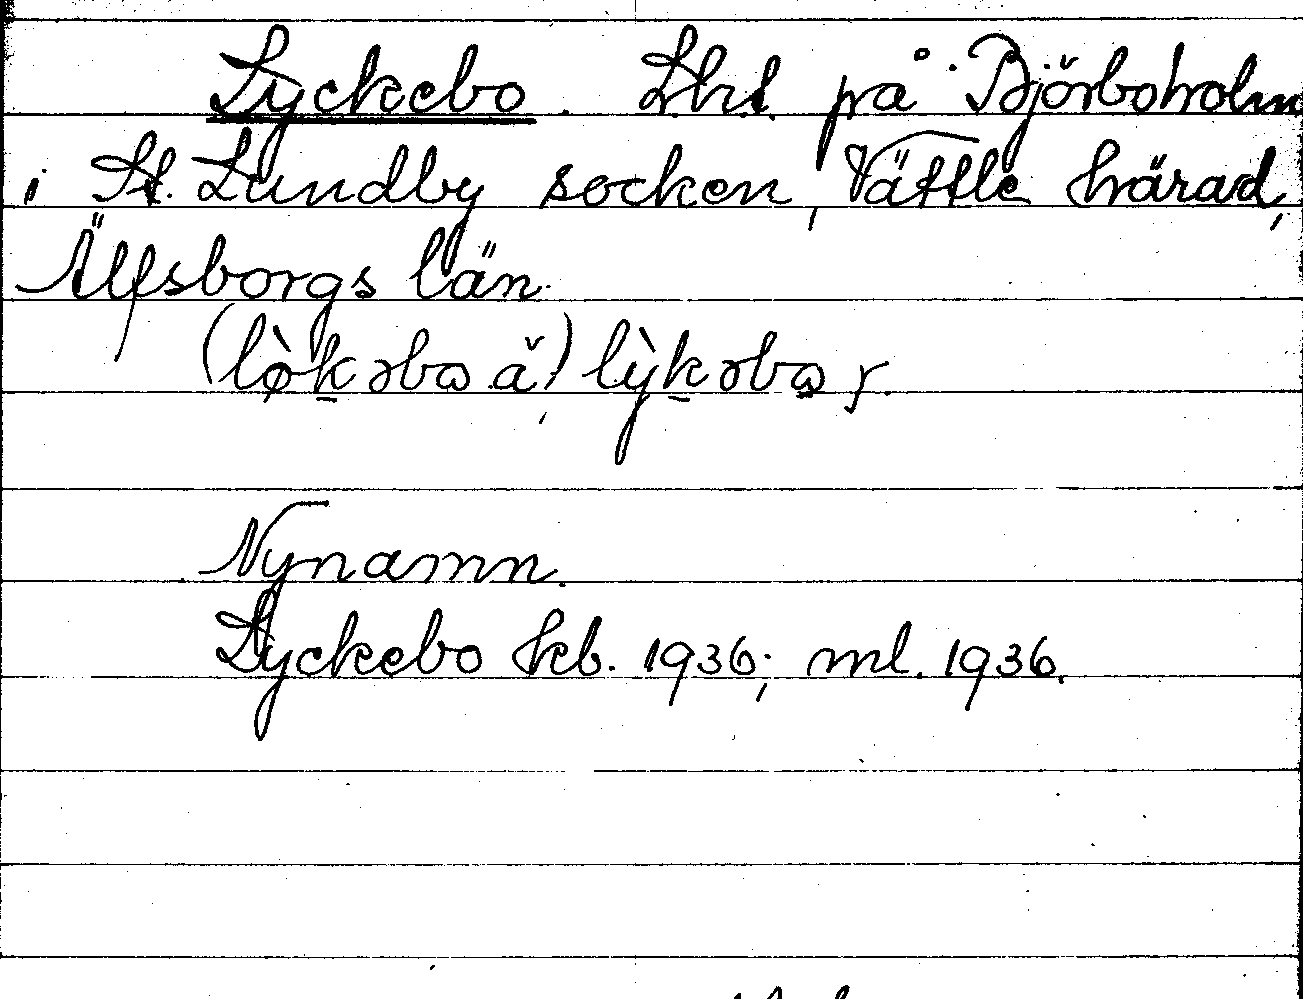 Lyckebo. Lht. på Björboholm
i St. Lundby socken, Vättle härad,
Älfsborgs län.
Nynamn.
Lyckebo kb. 1936; ml. 1936.